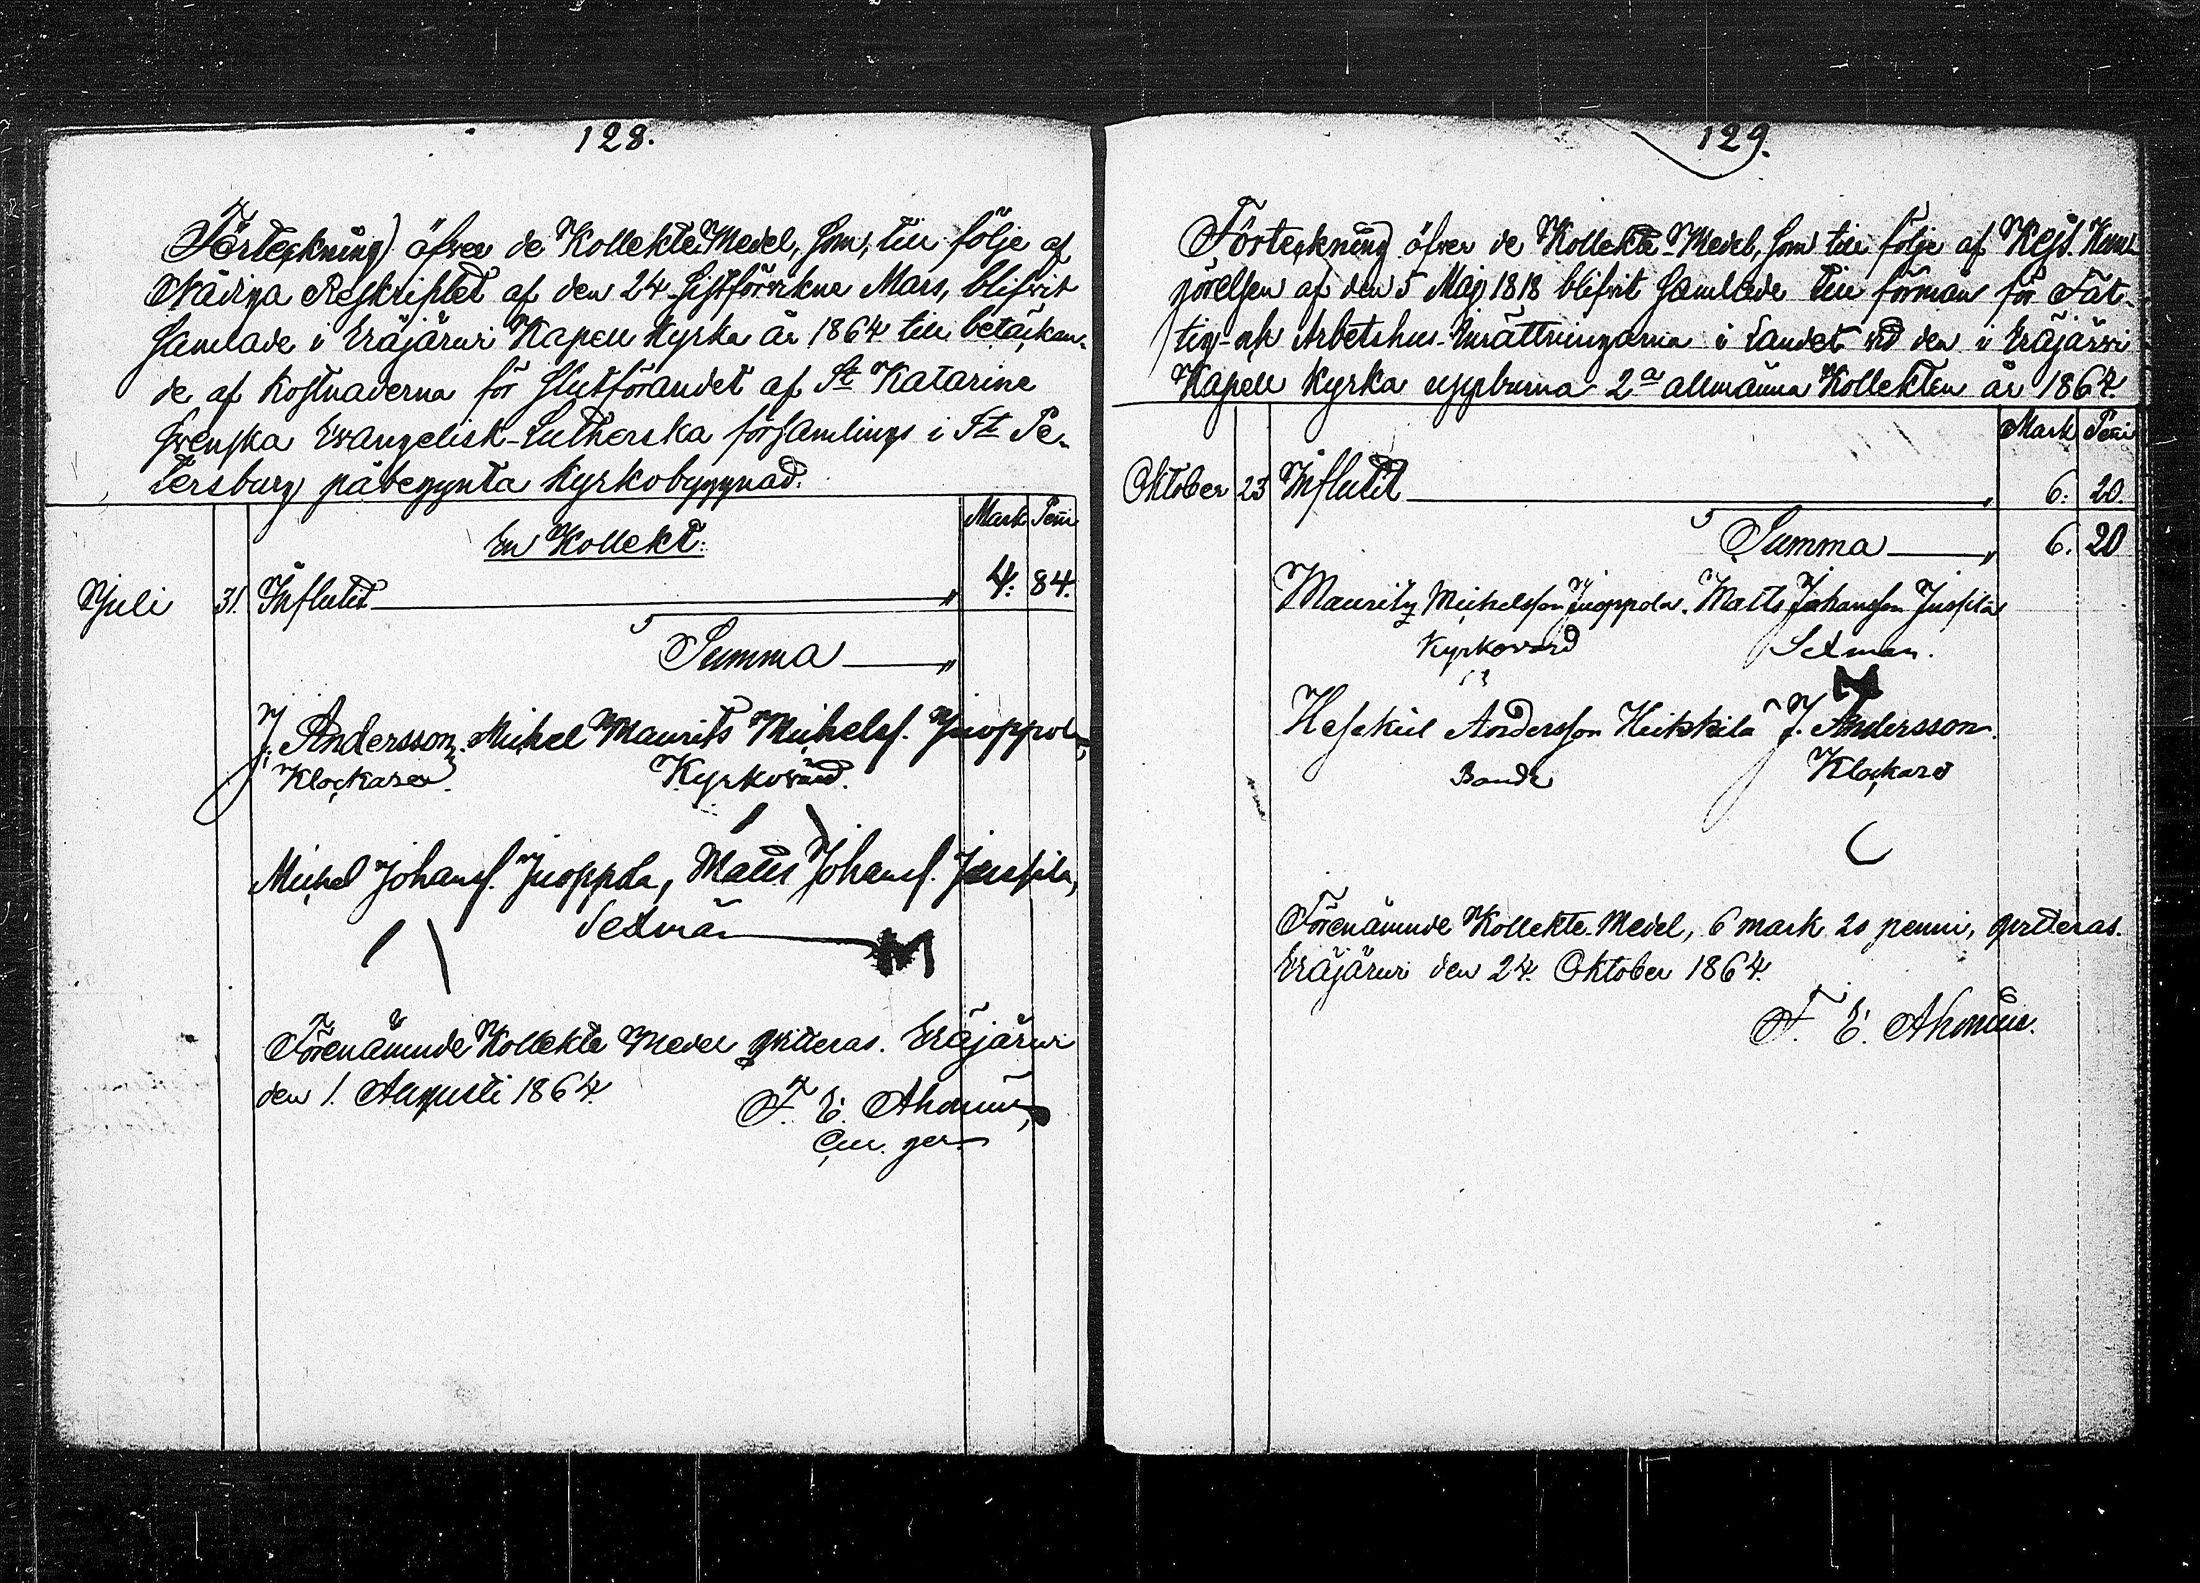 128.
Förteckning öfver de Kollekte Medel, som, till följe af
Nådiga Reskriptet af den 24 sistförvikne Mars, blifvit
samlade i Eräjärwi Kapell Kyrka år 1864 till betäckan-
de af kostnaderna för slutförandet af St Katarine
svenska Evangelisk-Lutherska församlings i St Pe-
tersburg påbegynta kyrkobyggnad.
Mark Peni
En Kollekt:
Juli 31. Influtit 4. 84.
Summa
J. Andersson. Michel Maurits Michelss. Juoppola,
Klockare. Kyrkovärd.
Michel Johanss. Juoppola, Matts Johanss. Jussila,
Sexmän
Förenämnde Kollekte Medel qvitteras. Eräjärwi
den 1. Augusti 1864.
F. E. Ahonius,
129.
Förteckning öfver de Kollekte-Medel, som till följe af Kejs. Kun-
görelsen af den 5 Maj 1818 blifvit samlade till förmån för Fat-
tig- och Arbetshus-Inrättningarna i Landet vid den i Eräjärwi
Kapell Kyrka uppburna 2a allmänna Kollekten år 1864.
Mark Peni
Oktober 23 Influtit 6. 20
Summa 6. 20
Mauritz Michelsson Juoppola. Matts Johansson Jussila
Kyrkovärd Sexman.
Hesekiel Andersson Heikkilä J. Andersson.
Bonde Klockare
Förenämnde Kollekte-Medel, 6 mark 20 penni, qvitteras.
Eräjärwi den 24. Oktober 1864.
F. E. Ahonius.